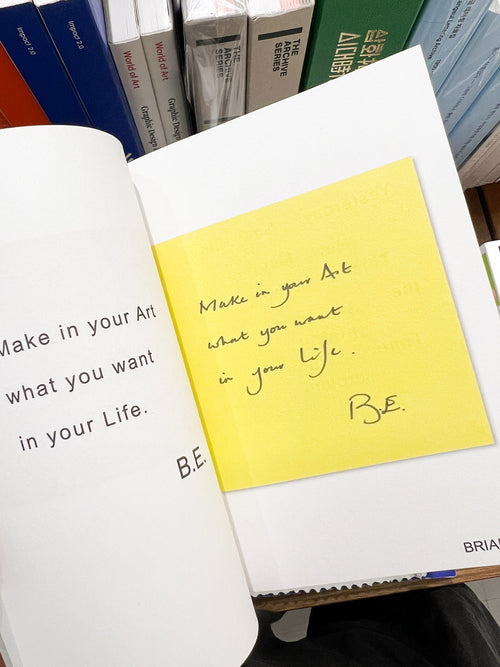 Impact 2.0
Impact 2.0
World of Art
Graphic Design
World of Art
Graphic Design
THE
ARCHIVE
SERIES
THE
ARCHIVE
SERIES
Make in your Art
what you want
in your Life.
B.E.
Make in your Art
what you want
in your Life.
B.E.